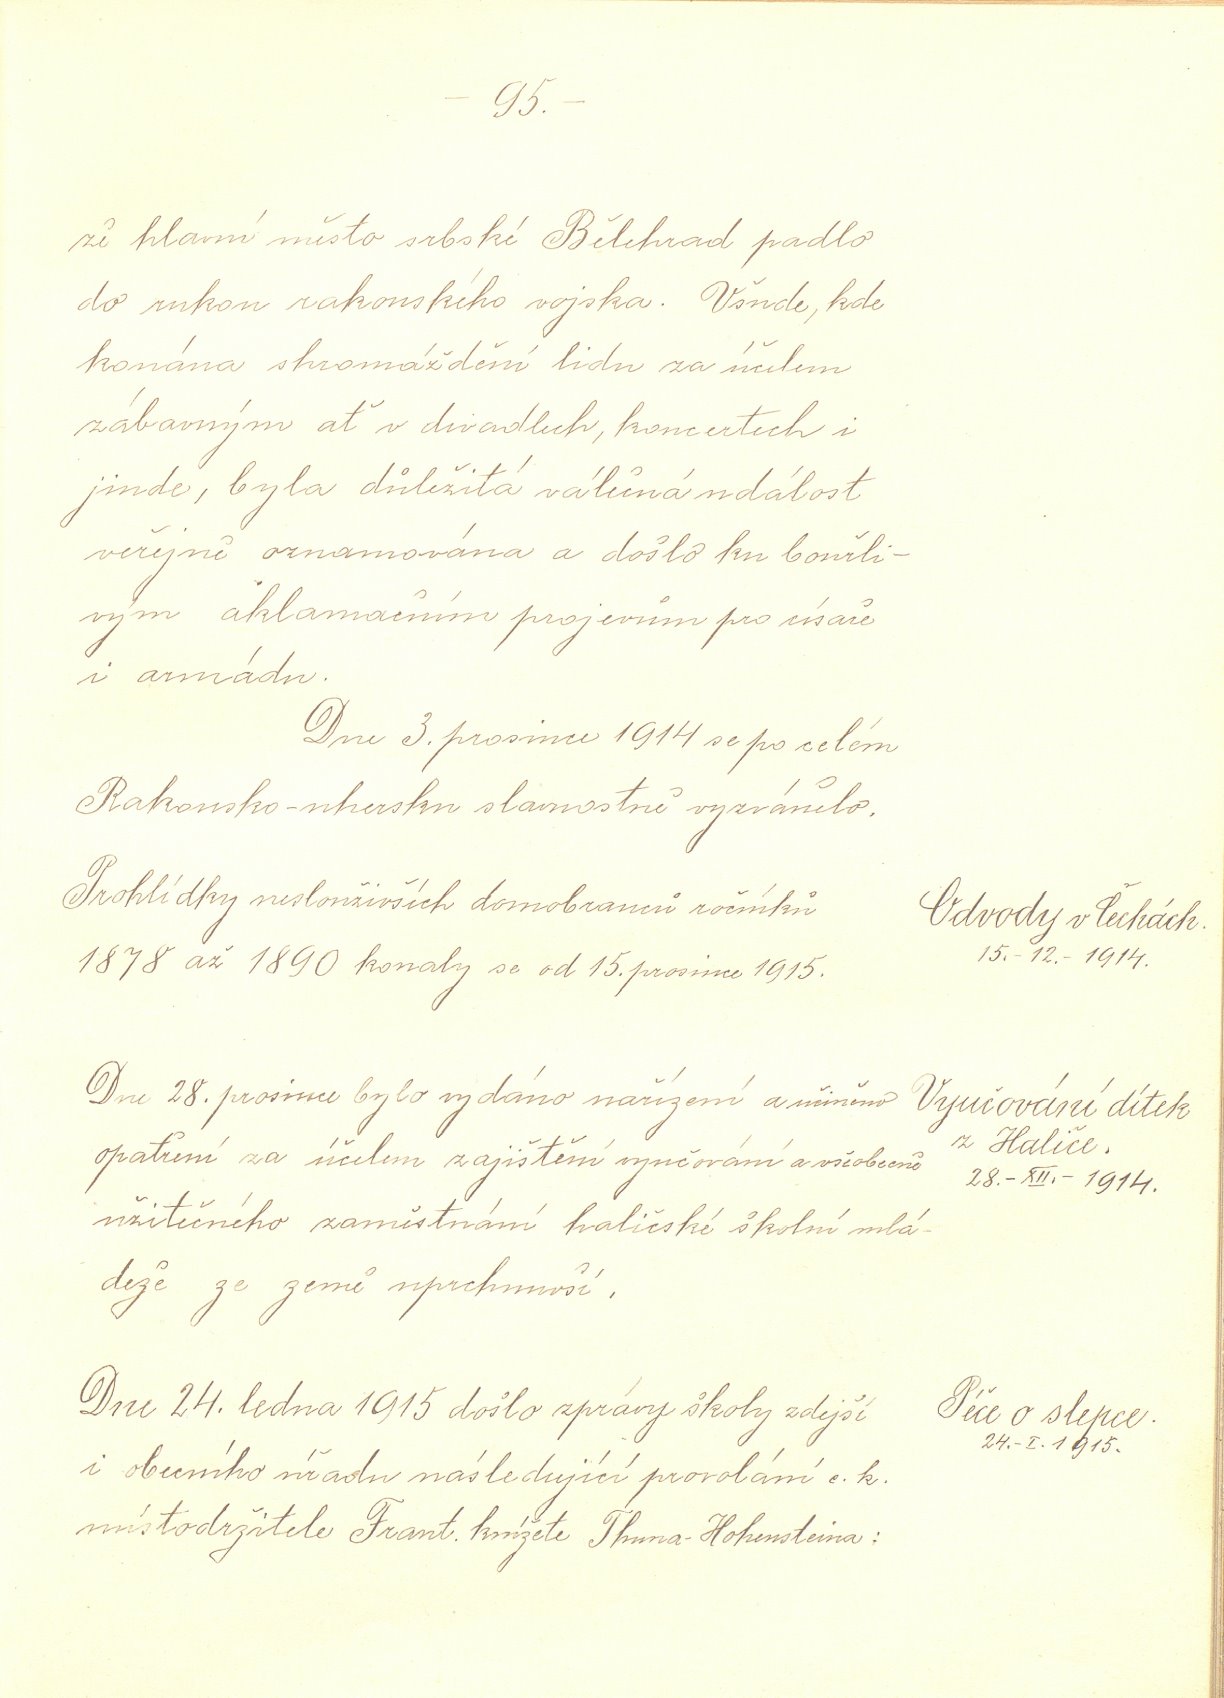 - 95. -
že hlavní město srbské Bělehrad padlo
do rukou rakouského vojska. Všude, kde
konána shromáždění lidu za účelem
zábavným ať v divadlech, koncertech i
jinde, byla důležitá válečná událost
veřejně oznamována a došlo ku bouřli-
vým aklamačním projevům pro císaře
i armádu.
Dne 3. prosince 1914 se po celém
Rakousko-uhersku slavnostně vyzvánělo.
Prohlídky neslouživších domobranců ročníků
1878 až 1890 konaly se od 15. prosince 1915.
Odvody v Čechách.
15.-12.-1914.
Dne 28. prosince bylo vydáno nařízení a učiněno
opatření za účelem zajištění vyučování a všeobecně
užitečného zaměstnání haličské školní mlá-
deže ze země uprchnuvší.
Vyučování dítek
z Haliče.
28.-XII.-1914.
Dne 24. ledna 1915 došlo zprávy školy zdejší
i obecního úřadu následující provolání c. k.
místodržitele Frant. knížete Thuna-Hohensteina:
Péče o slepce.
24.-I.1915.